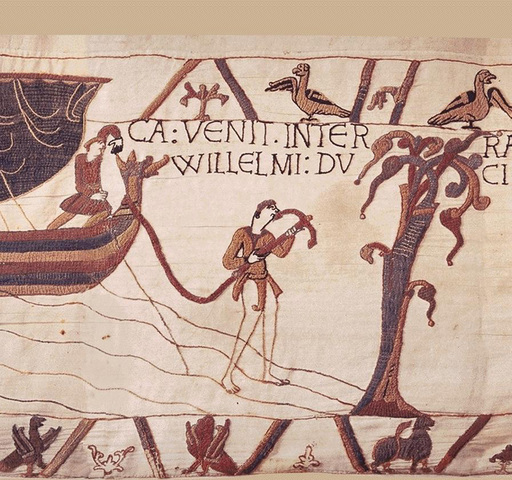 CA:VENIT.INTER
WILLELMI:DV
RA
CI